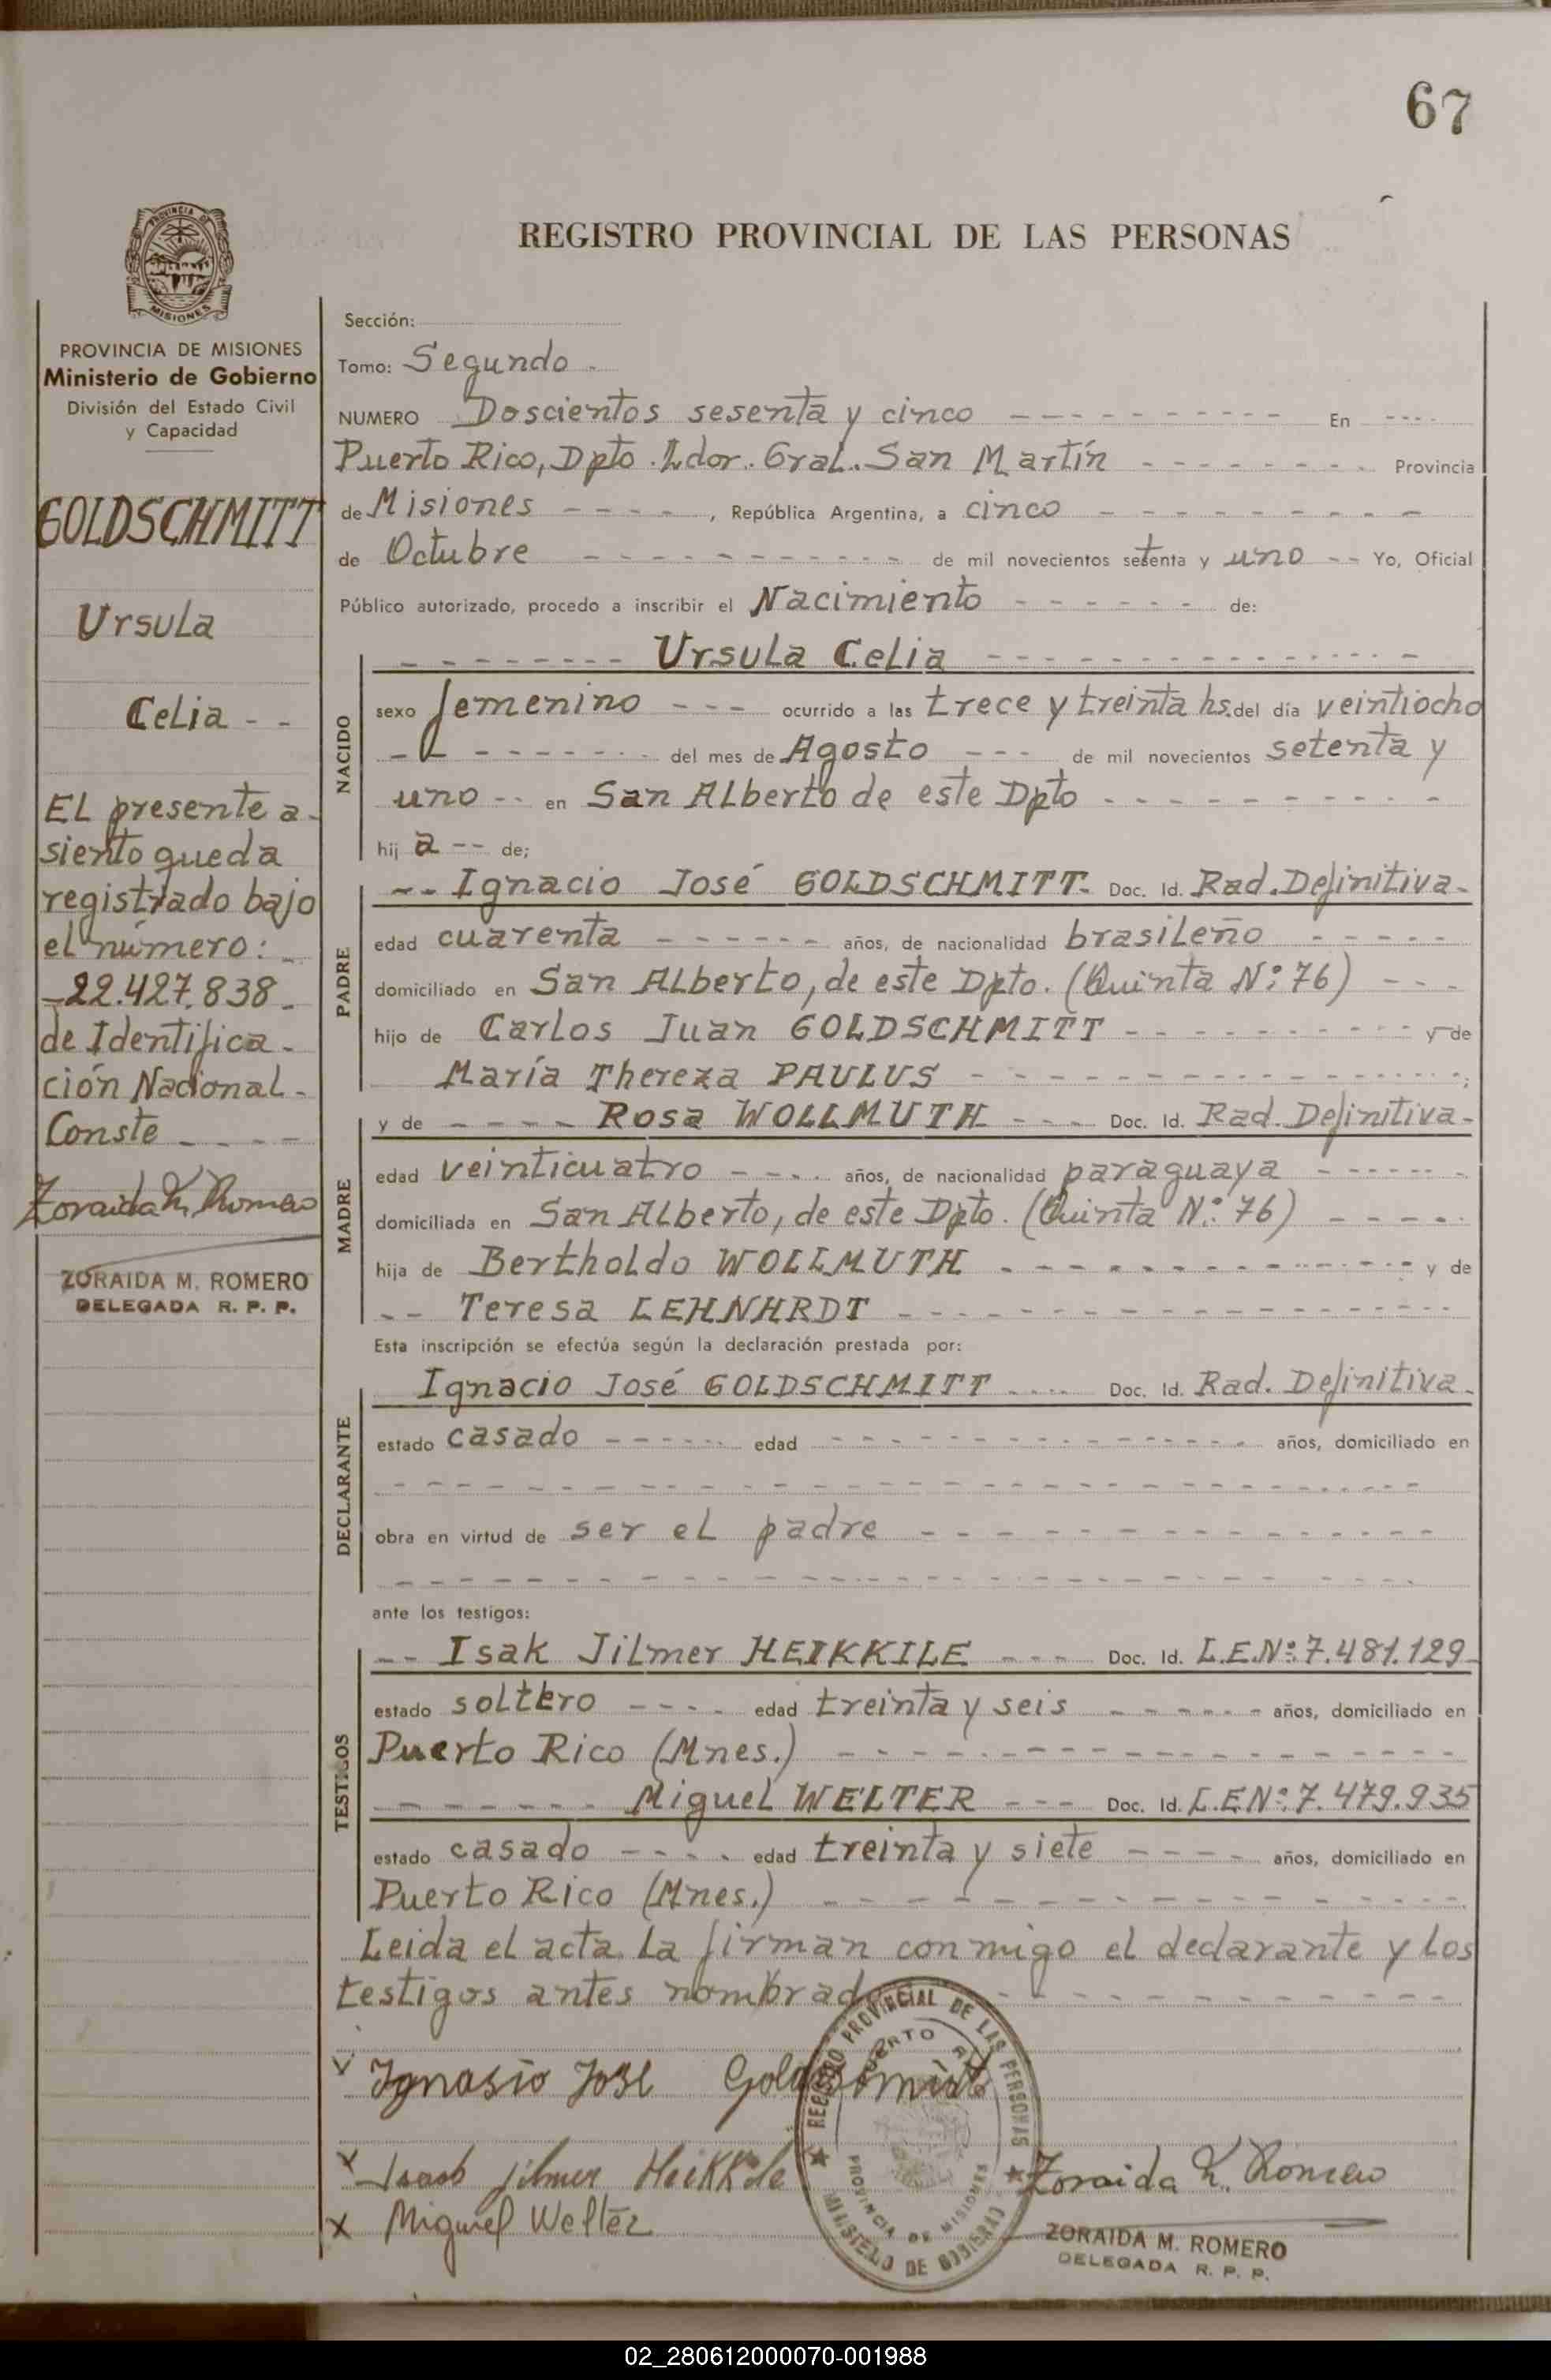 67
REGISTRO PROVINCIAL DE LAS PERSONAS
PROVINCIA DE MISIONES
PROVINCIA DE MISIONES
Ministerio de Gobierno
División del Estado Civil
y Capacidad
GOLDSCHMITT
Ursula
Celia - -
EL presente a-
siento queda
registrado bajo
el número: -
-22.427.838-
de Identifica-
ción Nacional-
Conste - - - -
Zoraida M. Romero
ZORAIDA M. ROMERO
DELEGADA R. P. P.
Sección:
Tomo: Segundo -
NUMERO Doscientos sesenta y cinco - - - - - - - - - - - En - - - -
Puerto Rico, Dpto. Ldor. Gral. San Martín - - - - - - - - Provincia
de Misiones - - - - , República Argentina, a cinco - - - - - - - - -
de Octubre - - - - - - - - - - - - de mil novecientos setenta y uno - - Yo, Oficial
Público autorizado, procedo a inscribir el Nacimiento - - - - - - de:
- - - - - - - - Ursula Celia - - - - - - - - - - - - - - -
NACIDO
sexo femenino - - - ocurrido a las trece y treinta hs. del día veintiocho
- - - - - - - - - del mes de Agosto - - - de mil novecientos setenta y
uno - - en San Alberto de este Dpto - - - - - - - - - -
hij a - - de;
PADRE
- - Ignacio José GOLDSCHMITT- Doc. Id. Rad. Definitiva-
edad cuarenta - - - - - - años, de nacionalidad brasileño - - - - -
domiciliado en San Alberto, de este Dpto. (Quinta N: 76) - - -
hijo de Carlos Juan GOLDSCHMITT - - - - - - - - - - y de
María Thereza PAULUS - - - - - - - - - - - - - - - - ;
MADRE
y de - - - - Rosa WOLLMUTH - - - - Doc. Id. Rad. Definitiva-
edad veinticuatro - - - - años, de nacionalidad paraguaya - - - - - -
domiciliada en San Alberto, de este Dpto. (Quinta N: 76) - - - - -
hija de Bertholdo WOLLMUTH - - - - - - - - - - - - - y de
- - Teresa LEHNHRDT - - - - - - - - - - - - - - - -
Esta inscripción se efectúa según la declaración prestada por:
DECLARANTE
Ignacio José GOLDSCHMITT - - - - Doc. Id. Rad. Definitiva-
estado casado - - - - - - edad - - - - - - - - - - - - - años, domiciliado en
- - - - - - - - - - - - - - - - - - - - - - - - - -
obra en virtud de ser el padre - - - - - - - - - - - - - - -
- - - - - - - - - - - - - - - - - - - - - - - - - -
ante los testigos:
TESTIGOS
- - Isak Jilmer HEIKKILE - - - Doc. Id. L.E.Nº: 7.481.129-
estado soltero - - - - edad treinta y seis - - - - - - años, domiciliado en
Puerto Rico (Mnes.) - - - - - - - - - - - - - - - - - -
- - - - - - - Miguel WELTER - - - Doc. Id. L.E.Nº: 7.479.935
estado casado - - - - edad treinta y siete - - - - años, domiciliado en
Puerto Rico (Mnes.) - - - - - - - - - - - - - - - - -
Leida el acta, la firman conmigo el declarante y los
testigos antes nombrados - - - - - - - - - - -
Ignasio José Goldschmitt
X Isack Jilmer Heikkile
X Miguel Welter
REGISTRO PROVINCIAL DE LAS PERSONAS
PUERTO RICO
PROVINCIA DE MISIONES
Zoraida M. Romero
ZORAIDA M. ROMERO
DELEGADA R. P. P.
02_280612000070-001988